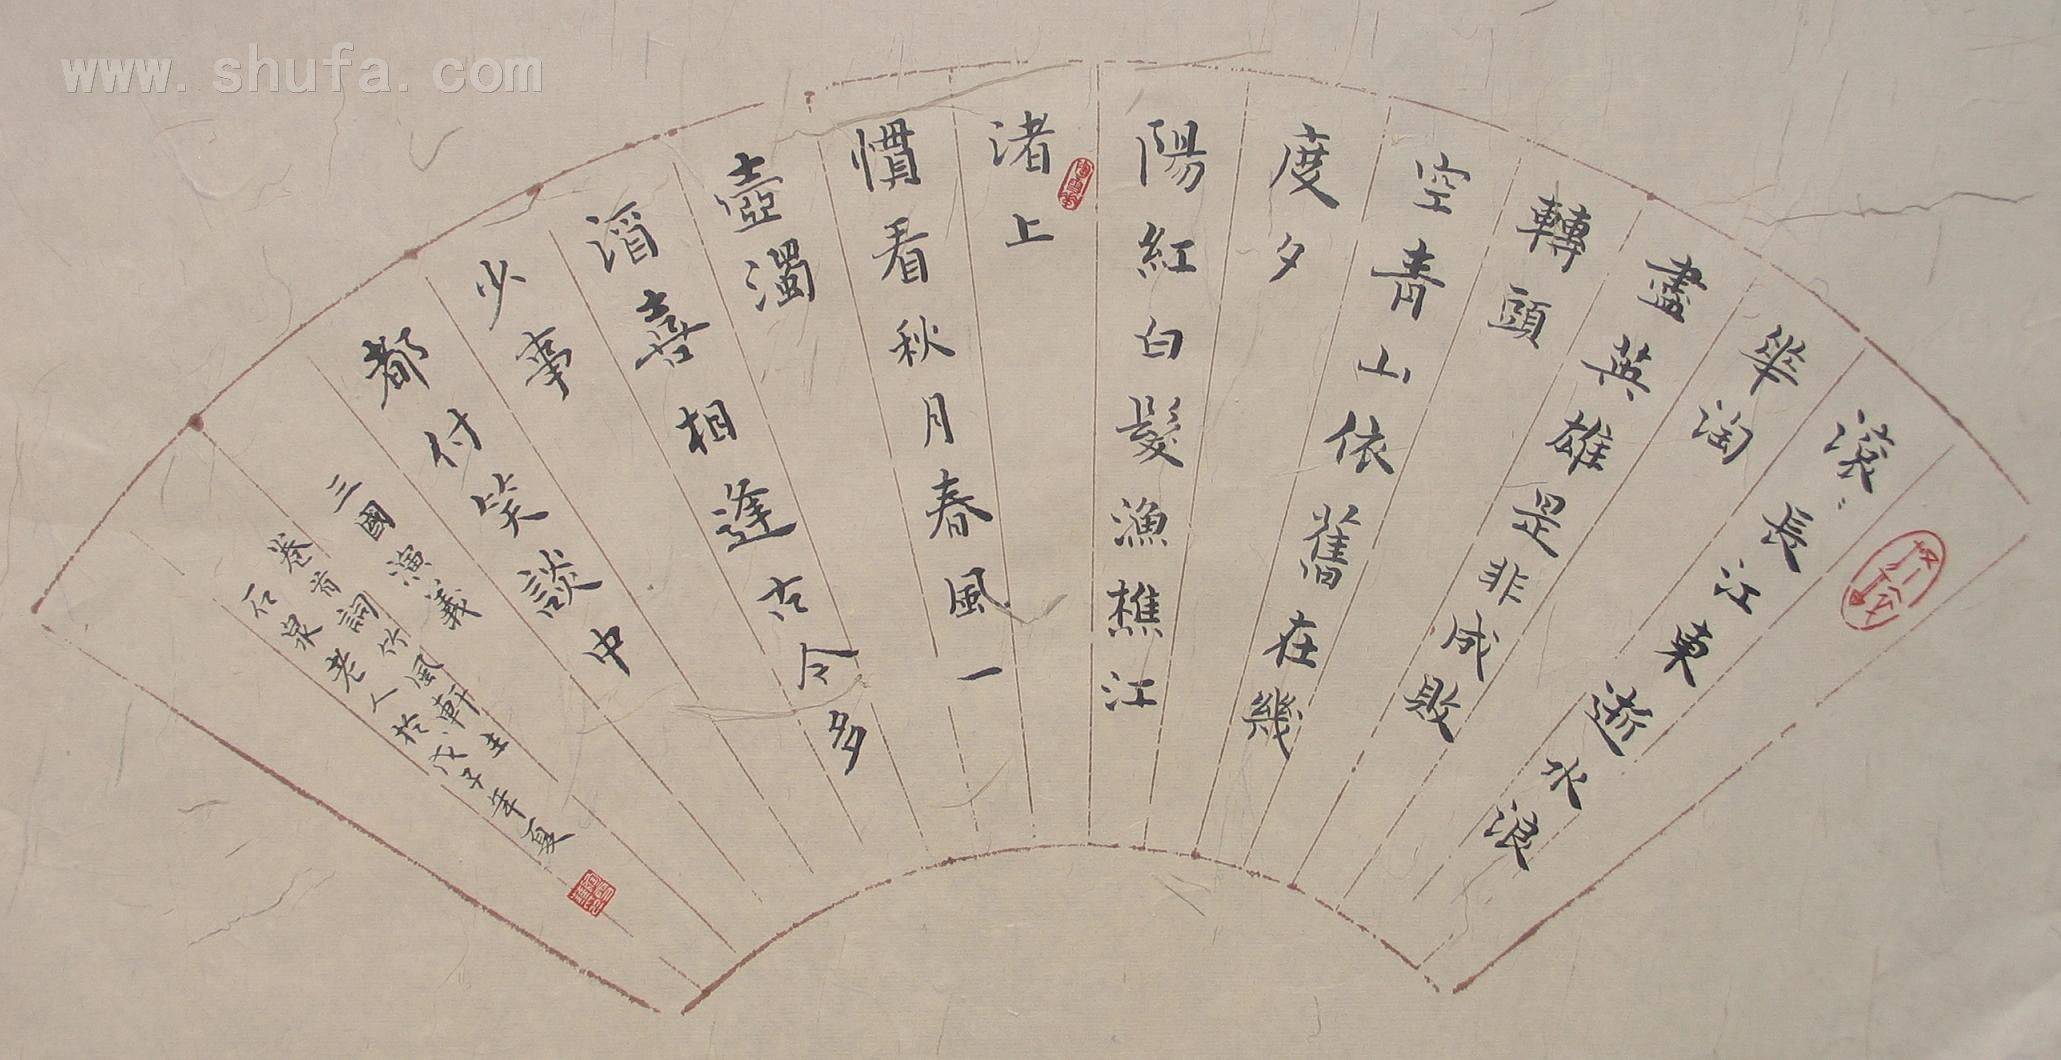 www.shufa.com
滾〻長江東逝水浪
華淘
盡英雄是非成敗
轉頭
空青山依舊在幾
度夕
陽紅白髮漁樵江
渚上
慣看秋月春風一
壺濁
酒喜相逢古今多
少事
都付笑談中
三國演義
卷首詞竹風軒主
石泉老人於戊子年夏